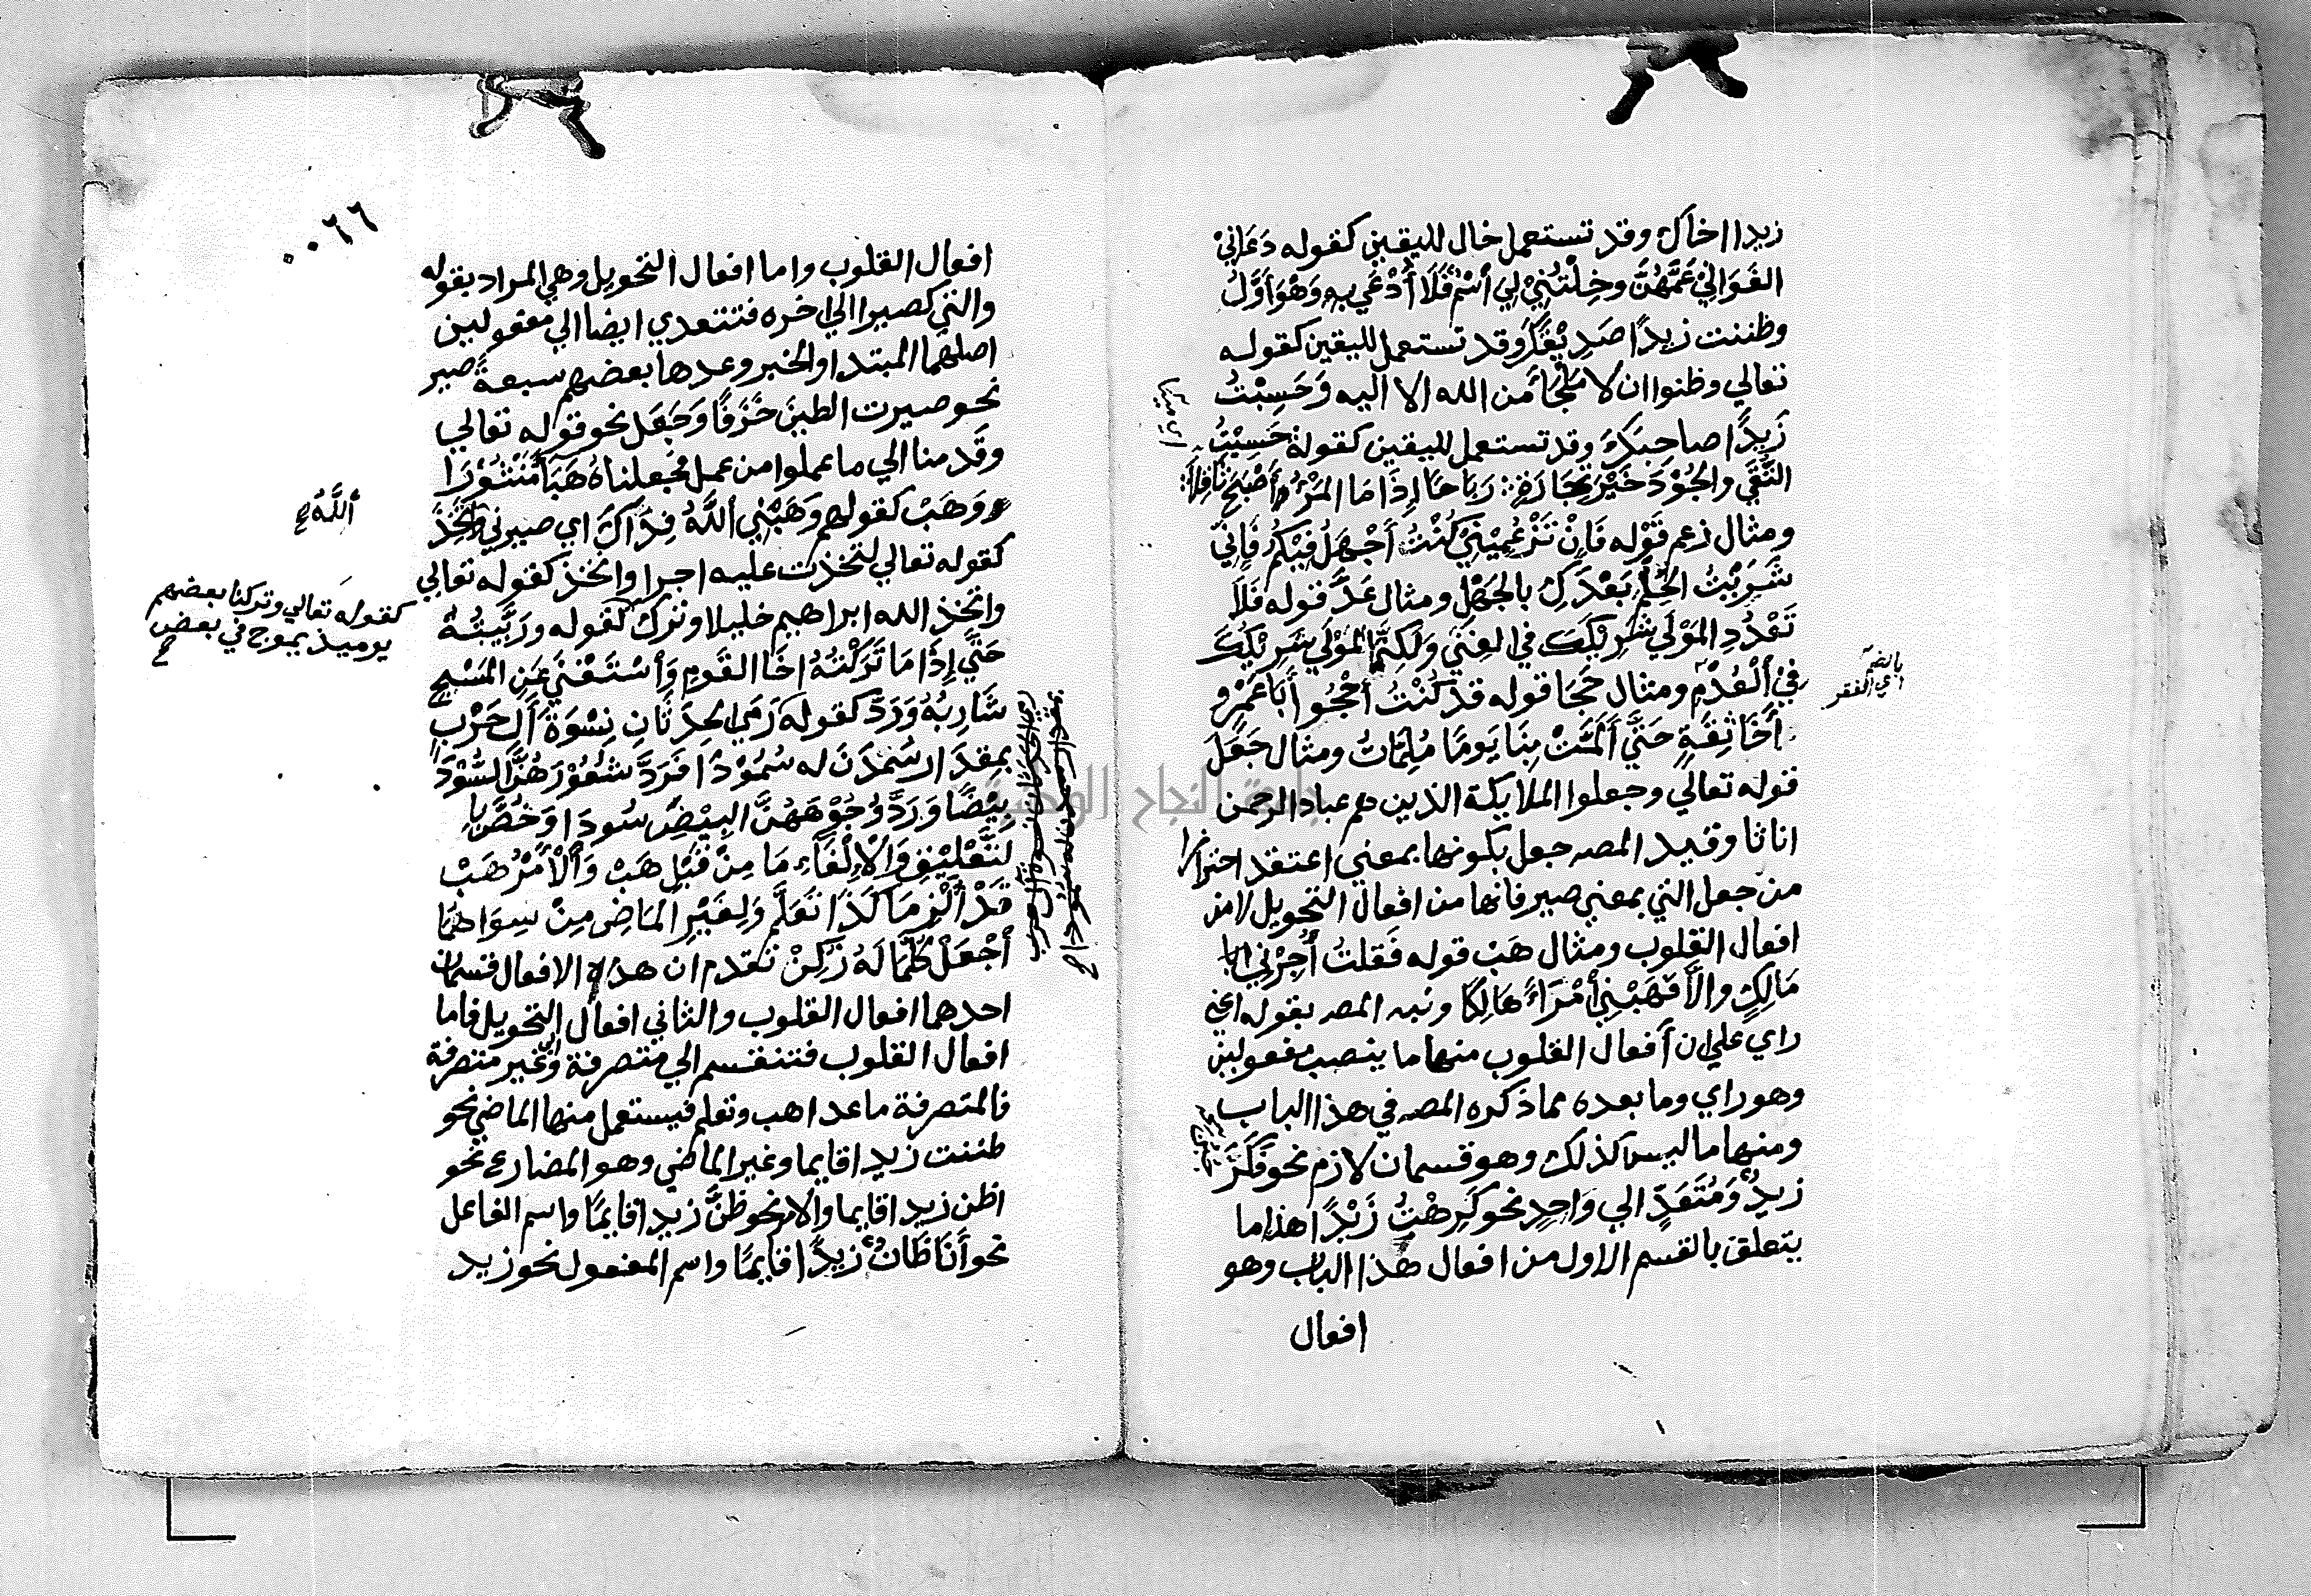 زيدا اخاك وقد تستعمل خال لليقين كقوله دَعَانِيْ
الغَوَانِيْ عَمَّهُنَّ وخِلْتُنِيْ لِي أسْمٌ فَلَا أُدْعَي بِهِ وَهْوَ أَوَّلُ
وظننت زيدًا صَدِيْقَكَ وقد تستعمل لليقين كقوله
تعالي وظنوا ان لا مَلْجَأ مَن الله الا اليه وَحَسِبْتُ
زَيدًا صاحِبَكَ وقد تستعمل لليقين كقوله حَسِبْتُ
التُّقَي والجُوْدَ خَيْرَ تِجَارَةٍ رَبَاحًا إِذَا مَا المَرْءُ أَصْبَحَ ثَاقِلاً
ومثال زعم قَوْله فَإِنْ تَزْعُمِيْنِيْ كُنْتُ أَجْهَلُ فِيْكُمُ فَإِنِّي
شَرَيْتُ الحِلْمَ بَعْدَكِ بالجَهْلِ ومثال عَدَّ قوله فَلَا
تَعْدُدِ المَوْلَي شَرِيْكَكَ في الغِنَي وَلَكِنَّمَا المَوْلَي شَرِيْكُكَ
فِيْ اَلْعُدْمِ ومثال حَجَا قوله قد كُنْتُ أَحْجُوا أَبَا عَمْرٍو
أَخَا ثِقَةٍ حَتَّي أَلَمَّتْ بِنَا يَومًا مُلِمَّاتُ ومثال جَعَلَ
قوله تعالي وجعلوا الملايكة الذين هم عباد الرحمن
اناثا وقيد المصه جعل بكونها بمعني اعتقد احترازا
من جعل التي بمعني صير فانها من افعال التحويل لا من
افعال القلوب ومثال هَبْ قوله فَقلتُ أَجِرْنِي ابا
مَالِكٍ والاَّ فَهَبْنِي أمْرَاءً هَالِكًا ونبه المصه بقوله اعني
راي علي ان أفعال القلوب منها ما ينصب مفعولين
وهو راي وما بعده مما ذكره المصه في هذا الباب
ومنها ما ليس كذلك وهو قسمان لازم نحو فَكَّرَ
زيدٌ وَمُتَعَدٍّ الي وَاحِدٍ نحو كَرِهْتُ زَيْدًا هذا ما
يتعلق بالقسم الاول من افعال هذا الباب وهو
افعال
بالضم
اي الفقر
٠٠٦٦
افعال القلوب واما افعال التحويل وهي المراد بقوله
والتي كصيرا الي اخره فتتعدي ايضا الي مفعولين
اصلهما المبتدا والخبر وعدها بعضهم سبعةً صير
نحو صيرت الطين خَزَفًا وَجَعَل نحو قوله تعالي
وقَدمنا الي ما عملوا من عمل فجعلناهُ هَبَاءً مَّنْثُوْرًا
وَوَهَبْ كقولهم وَهَبْنِي اَللَّهُ فِدَاكَ اي صيرني وتَخِذَ
كقوله تعالي لتخذت عليه اجرا واتخذ كقوله تعالي
واتخذ الله ابراهيم خليلا وترك كقوله ورَبَّيتُهُ
حَتَّي إِذَا مَا تَرَكْتُهُ اخَا القَومِ وَأسْتَغْنَي عَنِ المَسْحِ
شَارِبُهْ وَرَدَّ كقوله رَمَي الحِدْثَانِ نِسْوَةَ أَلِ حَرْبٍ
بِمِقدَارٍ سَمَدْنَ له سُمُوْدًا فَرَدَّ شُعُوْرَهُنَّ السُّوْدَ
بِيْضًا وَرَدَّ وُجُوْهَهُنَّ البِيْضَ سُودَا وَخُصَّ با
لتَّعْلِيْقِ وَالإِلْغَاءِ مَا مِنْ قَبْلِ هَبْ وَالأَمْرُ هَبْ
قَدْ أُلْزِمَا كَذَا تَعَلَّمْ وَلِغَيْرِ المَاضِ مِنْ سِوَاهُمَا
أجْعَلْ كُلَّمَا لَهُ زُكِنْ تقدم ان هذه الافعال قسمان
احدهما افعال القلوب والثاني افعال التحويل فاما
افعال القلوب فتنقسم الي متصرفة والي غير متصرفة
فالمتصرفة ماعدا هب وتعلم فيستعمل منها الماضي نحو
ظننت زيدا قايما وغير الماضي وهو المضارع نحو
اظن زيدا قايما والامر نحو ظنَّ زيدا قايمًا واسم الفاعل
نحو أَنَا ظَانٌّ زيدًا قايمًا واسم المفعول نحو زيد
اَللَّهُ
كقوله تعالي وتركنا بعضهم
يوميذ يموج في بعض